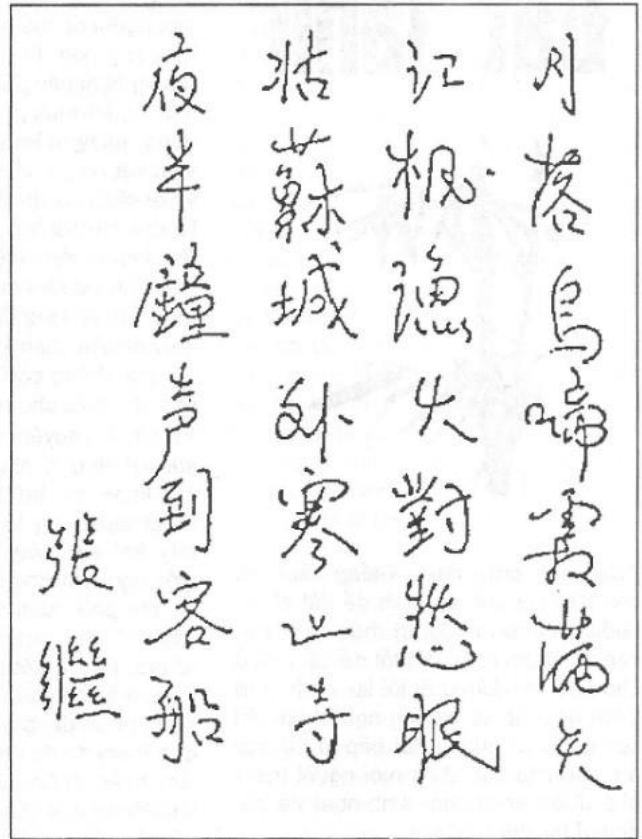 月落烏啼霜滿天
江楓漁火對愁眠
姑蘇城外寒山寺
夜半鐘声到客船
張繼